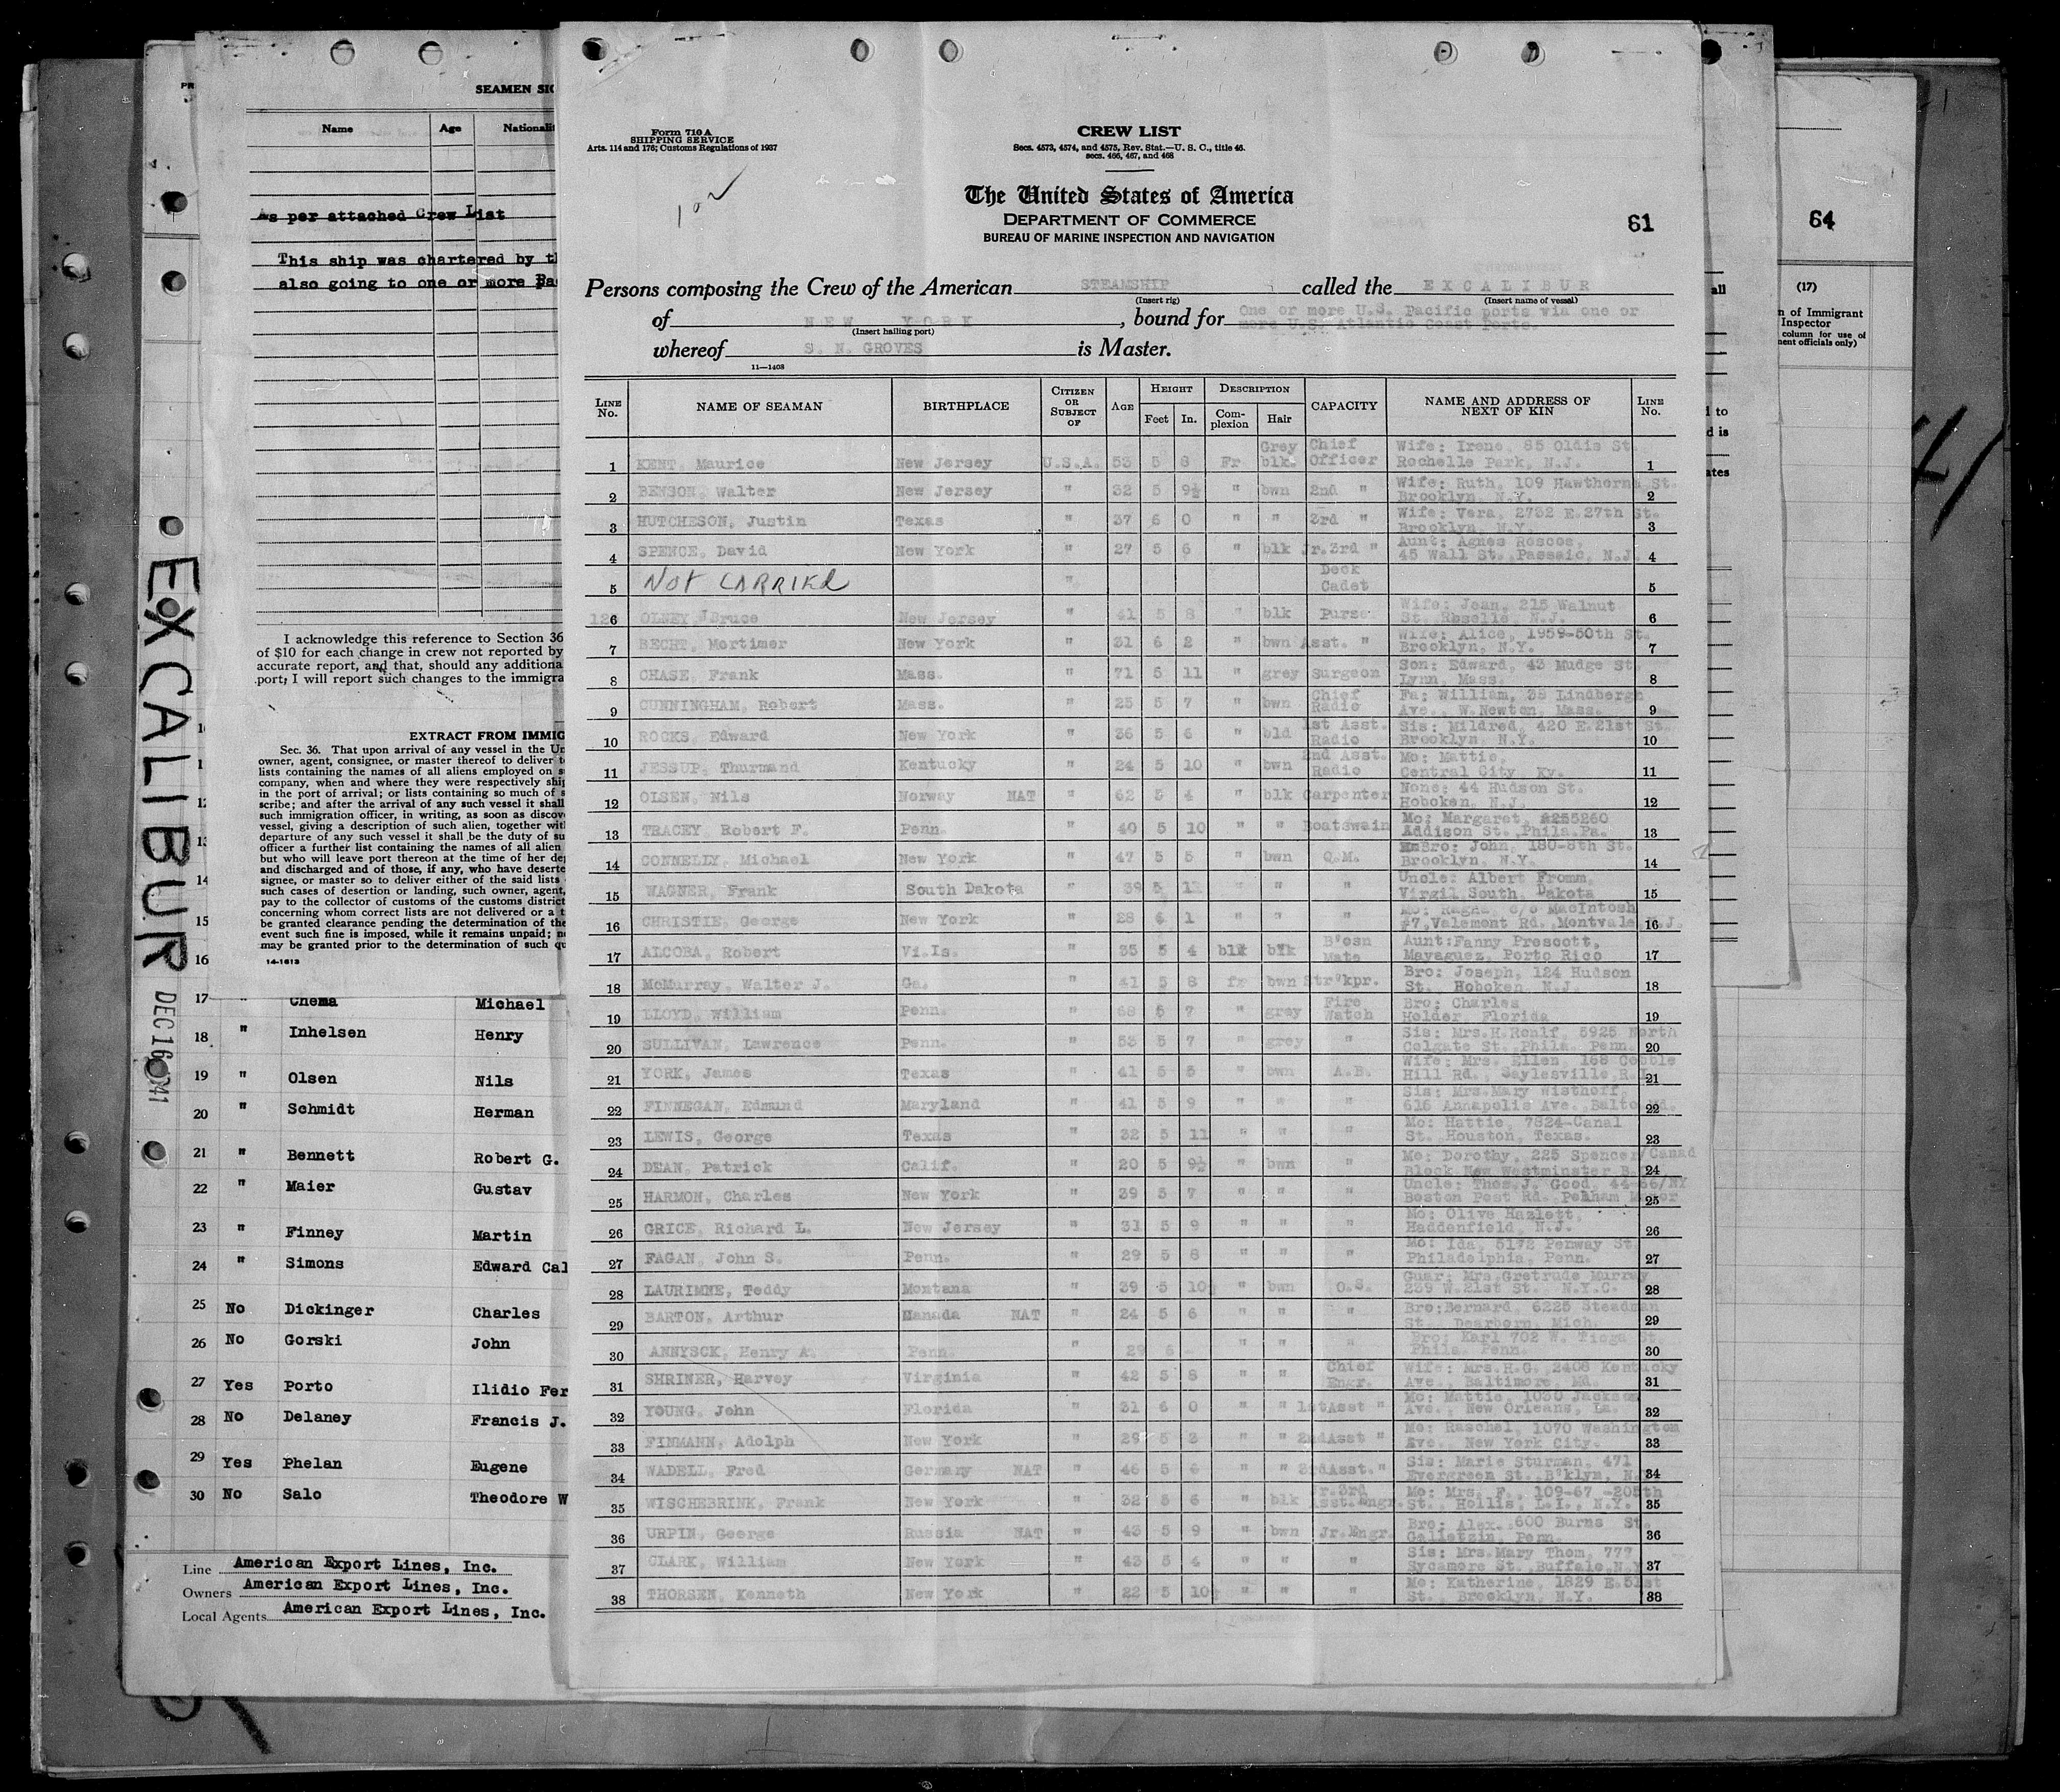 SEAMEN
Name Age
As per attached Crew List
This ship was chartered by
also going to one or more
I acknowledge this reference to Section 36
of $10 for each change in crew not reported by
accurate report, and that, should any additiona
port; I will report such changes to the immigra
EXTRACT FROM IMMIG
Sec. 36. That upon arrival of any vessel in the Un
owner, agent, consignee, or master thereof to deliver
lists containing the names of all aliens employed on
company, when and where they were respectively ship
in the port of arrival; or lists containing so much of
scribe; and after the arrival of any such vessel it shall
such immigration officer, in writing, as soon as discov
vessel, giving a description of such alien, together wit
departure of any such vessel it shall be the duty of su
officer a further list containing the names of all alien
but who will leave port thereon at the time of her de
and discharged and of those, if any, who have deserte
signee, or master so to deliver either of the said lists
such cases of desertion or landing, such owner, agent,
pay to the collector of customs of the customs district
concerning whom correct lists are not delivered or a
be granted clearance pending the determination of the
event such fine is imposed, while it remains unpaid;
may be granted prior to the determination of such
14-1613
EXCALIBUR DEC 16 1941
17 " Chema Michael
18 " Inhelsen Henry
19 " Olsen Nils
20 " Schmidt Herman
21 " Bennett Robert G.
22 " Maier Gustav
23 " Finney Martin
24 " Simons Edward Cal
25 No Dickinger Charles
26 No Gorski John
27 Yes Porto Ilidio Fer
28 No Delaney Francis J.
29 Yes Phelan Eugene
30 No Salo Theodore W
Line American Export Lines, Inc.
Owners American Export Lines, Inc.
Local Agents American Export Lines, Inc.
Form 710 A
SHIPPING SERVICE
Arts. 114 and 176; Customs Regulations of 1937
CREW LIST
Secs. 4573, 4574, and 4575, Rev. Stat.—U. S. C., title 46.
secs. 466, 467, and 468
The United States of America
DEPARTMENT OF COMMERCE
BUREAU OF MARINE INSPECTION AND NAVIGATION
61
Persons composing the Crew of the American STEAMSHIP called the EXCALIBUR
(Insert rig) (Insert name of vessel)
of NEW YORK, bound for One or more U.S. Pacific ports via one or
more U.S. Atlantic Coast Ports.
(Insert hailing port)
whereof S. N. GROVES is Master.
11—1403
LINE No. NAME OF SEAMAN BIRTHPLACE CITIZEN OR SUBJECT OF AGE HEIGHT Feet In. DESCRIPTION Complexion Hair CAPACITY NAME AND ADDRESS OF NEXT OF KIN LINE No.
1 KENT, Maurice New Jersey U.S.A. 53 5 8 Fr Grey blk. Chief Officer Wife: Irene, 85 Oldis St. Rochelle Park, N.J. 1
2 BENSON, Walter New Jersey " 32 5 9½ " bwn 2nd " Wife: Ruth, 109 Hawthorne St. Brooklyn, N.Y. 2
3 HUTCHESON, Justin Texas " 37 6 0 " " 3rd " Wife: Vera, 2732 E.27th St. Brooklyn, N.Y. 3
4 SPENCE, David New York " 27 5 6 " blk Jr.3rd " Aunt: Agnes Roscoe, 45 Wall St. Passaic, N.J. 4
5 NOT CARRIED " Deck Cadet 5
6 OLNEY, Bruce New Jersey " 41 5 8 " blk Purser Wife: Jean, 215 Walnut St. Roselle, N.J. 6
7 BECHT, Mortimer New York " 31 6 2 " bwn Asst. " Wife: Alice, 1959-50th St. Brooklyn, N.Y. 7
8 CHASE, Frank Mass. " 71 5 11 " grey Surgeon Son: Edward, 43 Mudge St. Lynn, Mass. 8
9 CUNNINGHAM, Robert Mass. " 25 5 7 " bwn Chief Radio Fa: William, 38 Lindbergh Ave., W.Newton, Mass. 9
10 ROCKS, Edward New York " 36 5 6 " bld 1st Asst. Radio Sis: Mildred, 420 E.21st St. Brooklyn, N.Y. 10
11 JESSUP, Thurmand Kentucky " 24 5 10 " bwn 2nd Asst. Radio Mo: Mattie, Central City, Ky. 11
12 OLSEN, Nils Norway NAT " 62 5 4 " blk Carpenter None: 44 Hudson St. Hoboken, N.J. 12
13 TRACEY, Robert F. Penn. " 40 5 10 " " Boatswain Mo: Margaret, 5260 Addison St. Phila.Pa. 13
14 CONNELLY, Michael New York " 47 5 5 " bwn Q.M. Bro: John, 180-8th St. Brooklyn, N.Y. 14
15 WAGNER, Frank South Dakota " 39 5 11 " " " Uncle: Albert Fromm, Virgil South, Dakota 15
16 CHRISTIE, George New York " 28 6 1 " " " Mo: Ragna c/o MacIntosh 47,Valemont Rd. Montvale N.J. 16
17 ALCOBA, Robert Vi.Is. " 35 5 4 blk blk B'osn Mate Aunt:Fanny Prescott, Mayaguez, Porto Rico 17
18 McMurray, Walter J. Ga. " 41 5 8 fr bwn Str'kpr. Bro: Joseph, 124 Hudson St. Hoboken, N.J. 18
19 LLOYD, William Penn. " 68 5 7 " grey Fire Watch Bro: Charles Holder, Florida 19
20 SULLIVAN, Lawrence Penn. " 53 5 7 " grey " Sis: Mrs.H.Rohlf, 5925 North Colgate St. Phila. Penn. 20
21 YORK, James Texas " 41 5 5 " bwn A.B. Wife: Mrs. Ellen, 168 Hill Rd., Saylesville,R.I. 21
22 FINNEGAN, Edmund Maryland " 41 5 9 " " " Sis: Mrs.Mary Wisthoff, 616 Annapolis Ave. Balto Md. 22
23 LEWIS, George Texas " 32 5 11 " " " Mo: Hattie, 7824-Canal St. Houston, Texas. 23
24 DEAN, Patrick Calif. " 20 5 9½ " bwn " Mo: Dorothy, 225 Spencer/Canad Block New Westminster 24
25 HARMON, Charles New York " 39 5 7 " " " Uncle: Thos.J. Good, 44-66/NY Boston Post Rd. Pelham Manor 25
26 GRICE, Richard L. New Jersey " 31 5 9 " " " Mo: Olive Hazlett, Haddenfield, N.J. 26
27 FAGAN, John S. Penn. " 29 5 8 " " " Mo: Ida, 5172 Penway St. Philadelphia, Penn. 27
28 LAURIMNE, Teddy Montana " 39 5 10½ " bwn O.S. Guar: Mrs.Gretrude Murray 239 W.21st St. N.Y.C. 28
29 BARTON, Arthur Canada NAT " 24 5 6 " " " Bro:Bernard, 6225 Steadman St. Dearborn, Mich. 29
30 ANNYSCK, Henry A. Penn. " 29 6 - " " " Bro: Karl 702 W. Tioga St. Phila. Penn. 30
31 SHRINER, Harvey Virginia " 42 5 8 " " Chief Engr. Wife: Mrs.H.G. 2408 Kentucky Ave., Baltimore, Md. 31
32 YOUNG, John Florida " 31 6 0 " " 1stAsst " Mo: Mattie, 1030 Jackson Ave., New Orleans, La. 32
33 FINMANN, Adolph New York " 29 5 2 " " 2ndAsst " Mo: Raschel, 1070 Washington Eve. New York City. 33
34 WADELL, Fred Germany NAT " 46 5 6 " " 3rdAsst." Sis: Marie Sturman, 471 Evergreen St. B'klyn, N.Y. 34
35 WISCHEBRINK, Frank New York " 32 5 6 " blk Jr.3rd Asst.Engr. Mo: Mrs. F. 109-67 -205th St., Hollis, L.I., N.Y. 35
36 URPIN, George Russia NAT " 43 5 9 " bwn Jr.Engr. Bro: Alex. 600 Burns St. Galletzin, Penn. 36
37 CLARK, William New York " 43 5 4 " " " Sis: Mrs.Mary Thom, 777 Sycamore St. Buffalo,N.Y. 37
38 THORSEN, Kenneth New York " 22 5 10½ " " " Mo: Katherine, 1829 E.51st St., Brooklyn, N.Y. 38
64
(17)
of Immigrant
Inspector
column for use of
officials only)